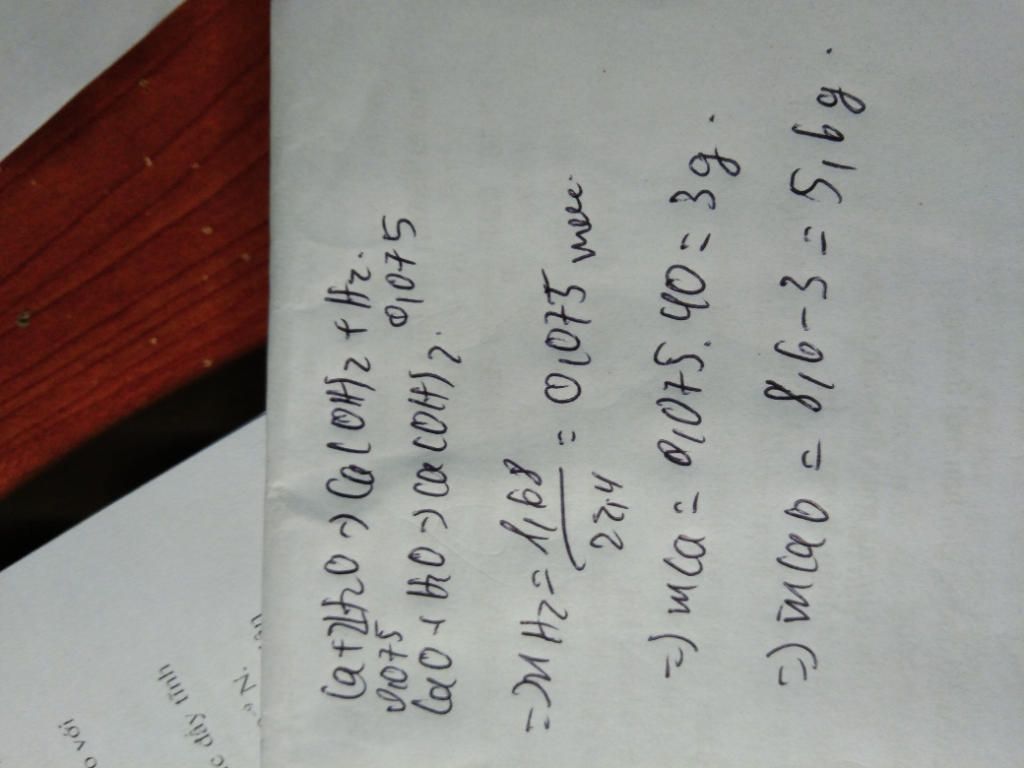 Ca+2H2O → Ca(OH)2 + H2.
0,075 0,075
CaO + H2O → Ca(OH)2.
=) nH2 = 1,68 / 22,4 = 0,075 mol.
=) mCa = 0,075.40 = 3g.
=) mCaO = 8,6-3 = 5,6g.
o với
dây tĩnh
N.